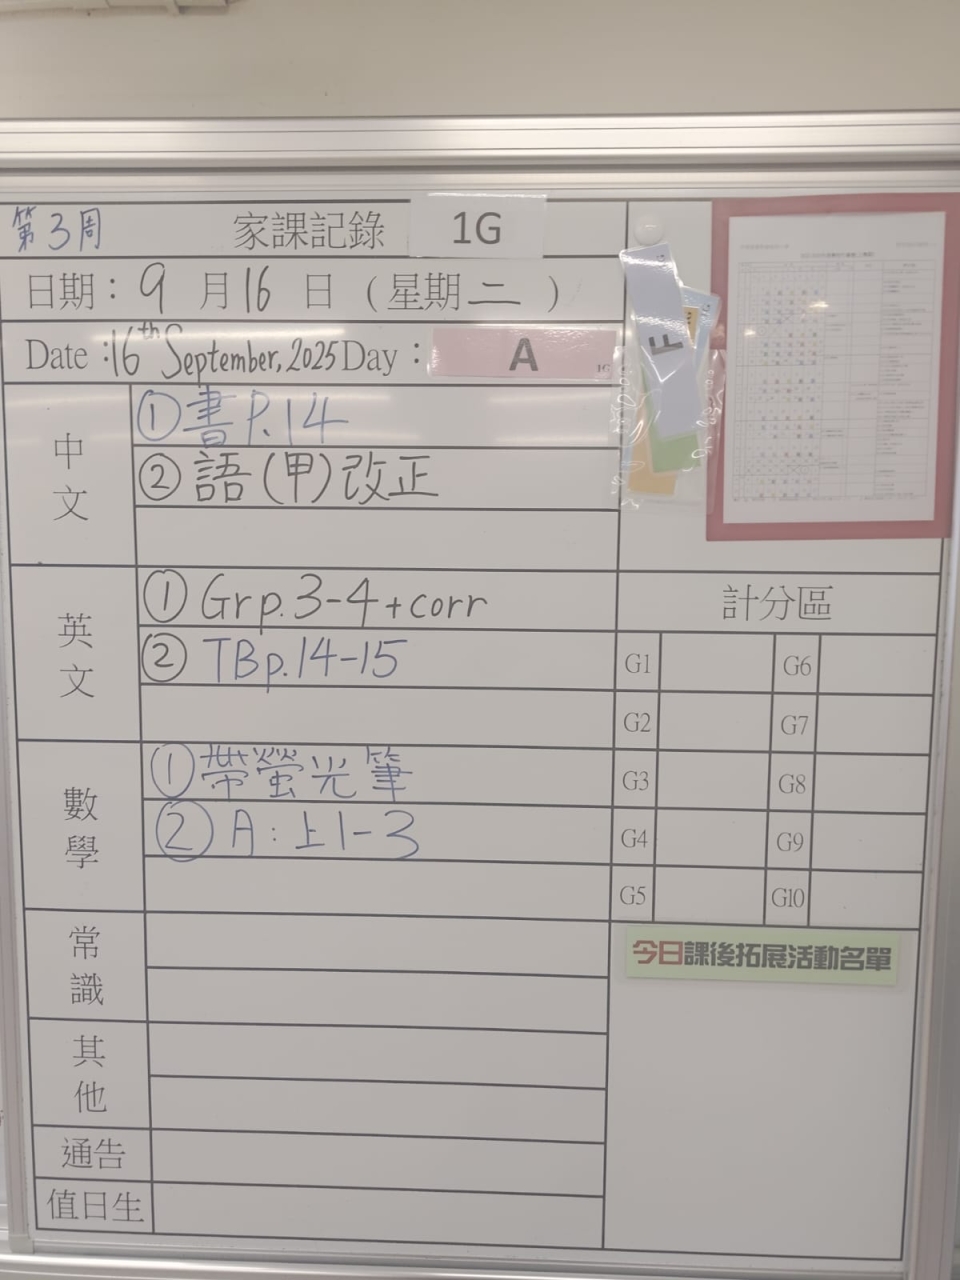 第3周 家課記錄 1G
日期：9月16日（星期二）
Date：16th September, 2025 Day：A 1G
F
中文
①書P.14
②語(甲)改正
英文
①Gr p.3-4+corr
②TB p.14-15
數學
①帶螢光筆
②A：上1-3
常識
其他
通告
值日生
計分區
G1 G6
G2 G7
G3 G8
G4 G9
G5 G10
今日課後拓展活動名單